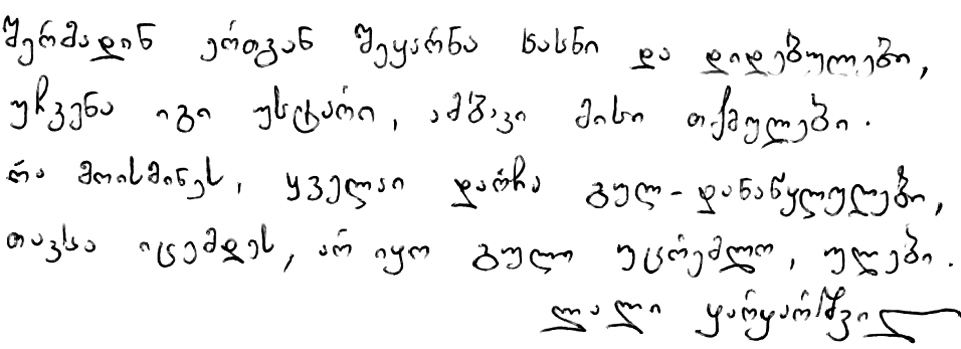 შერმადინ ერთგან შეყარნა ხასნი და დიდებულები,
უჩვენა იგი უსტარი, ამბავი მისი თქმულები.
რა მოისმინეს, ყველაი დარჩა გულ-დანაწყლულები,
თავსა იცემდეს, არ იყო გული უცრემლო, ულები.
ლალი ყარყარაშვილ